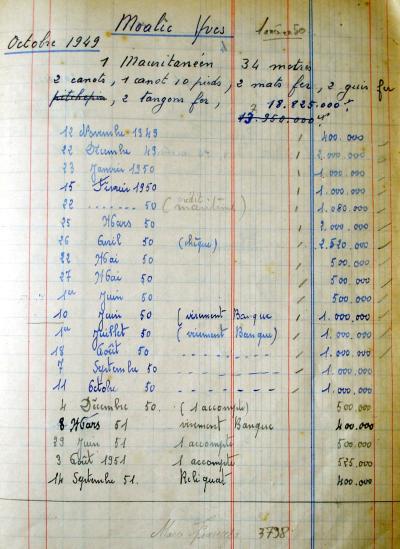 Moalic Yves
Octobre 1949
1 Mauritanéen 34 metres
2 canots, 1 canot 10 pieds, 2 mats fer, 2 guis fer
pitchepin, 2 tangons fer, 18.825.000
13.950.000
12 Novembre 1949 400.000
22 Décembre 49 2.000.000
23 Janvier 1950 1.000.000
15 Février 1950 1.000.000
22 ....... 50 (crédit maritime) 1.080.000
25 Mars 50 2.000.000
26 Avril 50 (chèque) 2.520.000
22 Mai 50 500.000
27 Mai 50 500.000
1er Juin 50 500.000
10 Juin 50 (virement Banque 1.000.000
1er Juillet 50 (virement Banque) 1.000.000
18 Août 50 - - - - - - - - 1.000.000
7 Septembre 50 - - - - - - - - 1.000.000
11 Octobre 50 - - - - - - - - 1.000.000
4 Décembre 50. (1 accompte) 500.000
8 Mars 51 virement Banque 400.000
29 Juin 51 1 accompte 500.000
3 Août 1951 1 accompte 525.000
14 Septembre 51. Reliquat 400.000
3798